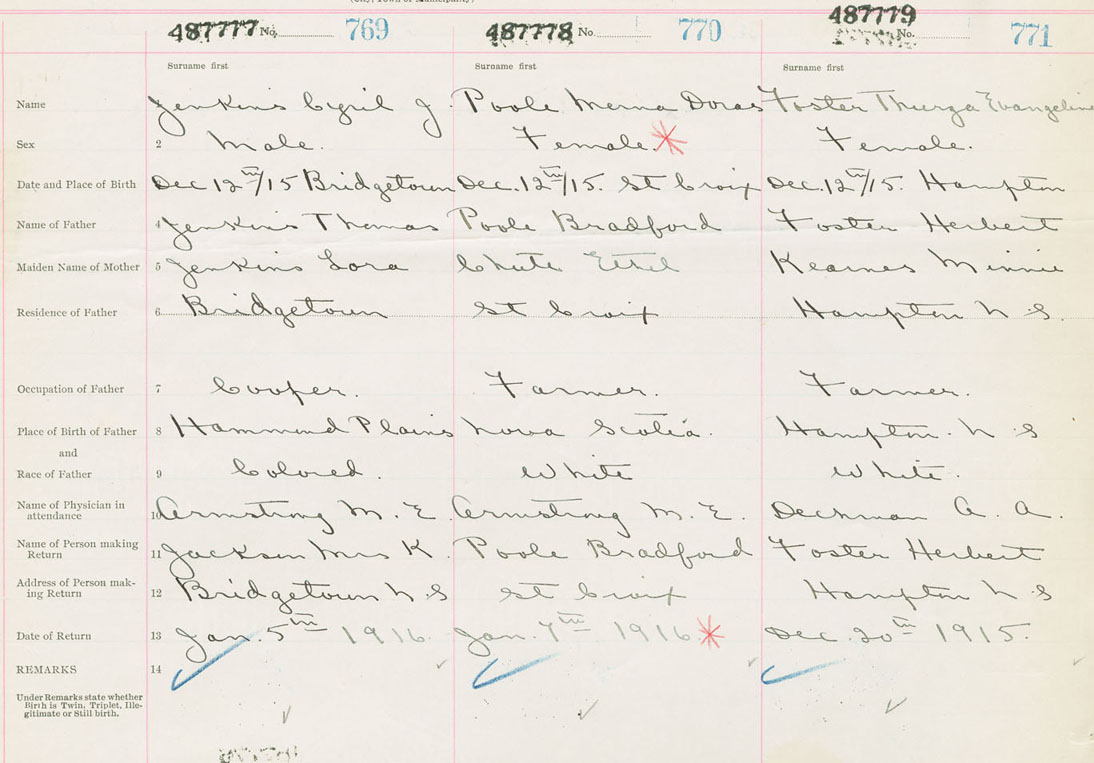 (City, Town or Municipality)
487777 No. 769 487778 No. 770 487779 No. 771
Surname first Surname first Surname first
Name Jenkins Cyril J. Poole Merna Doras Foster Thurza Evangeline
Sex 2 Male. Female. Female.
Date and Place of Birth Dec 12th/15 Bridgetown Dec. 12th/15. St Croix Dec. 12th/15. Hampton
Name of Father 4 Jenkins Thomas Poole Bradford Foster Herbert
Maiden Name of Mother 5 Jenkins Lora Chute Ethel Kearnes Minnie
Residence of Father 6 Bridgetown St Croix Hampton N.S.
Occupation of Father 7 Cooper. Farmer. Farmer.
Place of Birth of Father 8 Hammond Plains Nova Scotia. Hampton. N S
and
Race of Father 9 Colored. White White.
Name of Physician in
attendance 10 Armstrong M. E. Armstrong M. E. Deckman A. A.
Name of Person making
Return 11 Jackson Mrs K. Poole Bradford Foster Herbert
Address of Person mak-
ing Return 12 Bridgetown N.S St Croix Hampton N S
Date of Return 13 Jan. 5th 1916. Jan. 7th 1916. Dec. 20th 1915.
REMARKS 14
Under Remarks state whether
Birth is Twin, Triplet, Ille-
gitimate or Still birth.